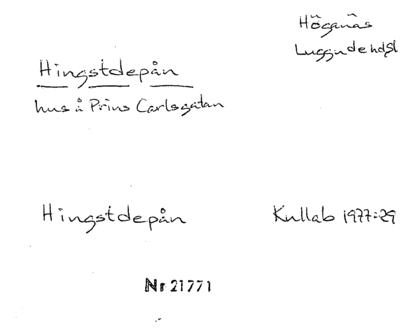 Höganäs
Luggudehdsl
Hingstdepån
hus å Prins Carlsgatan
Hingstdepån
Kullab 1977:29
Nr 21771